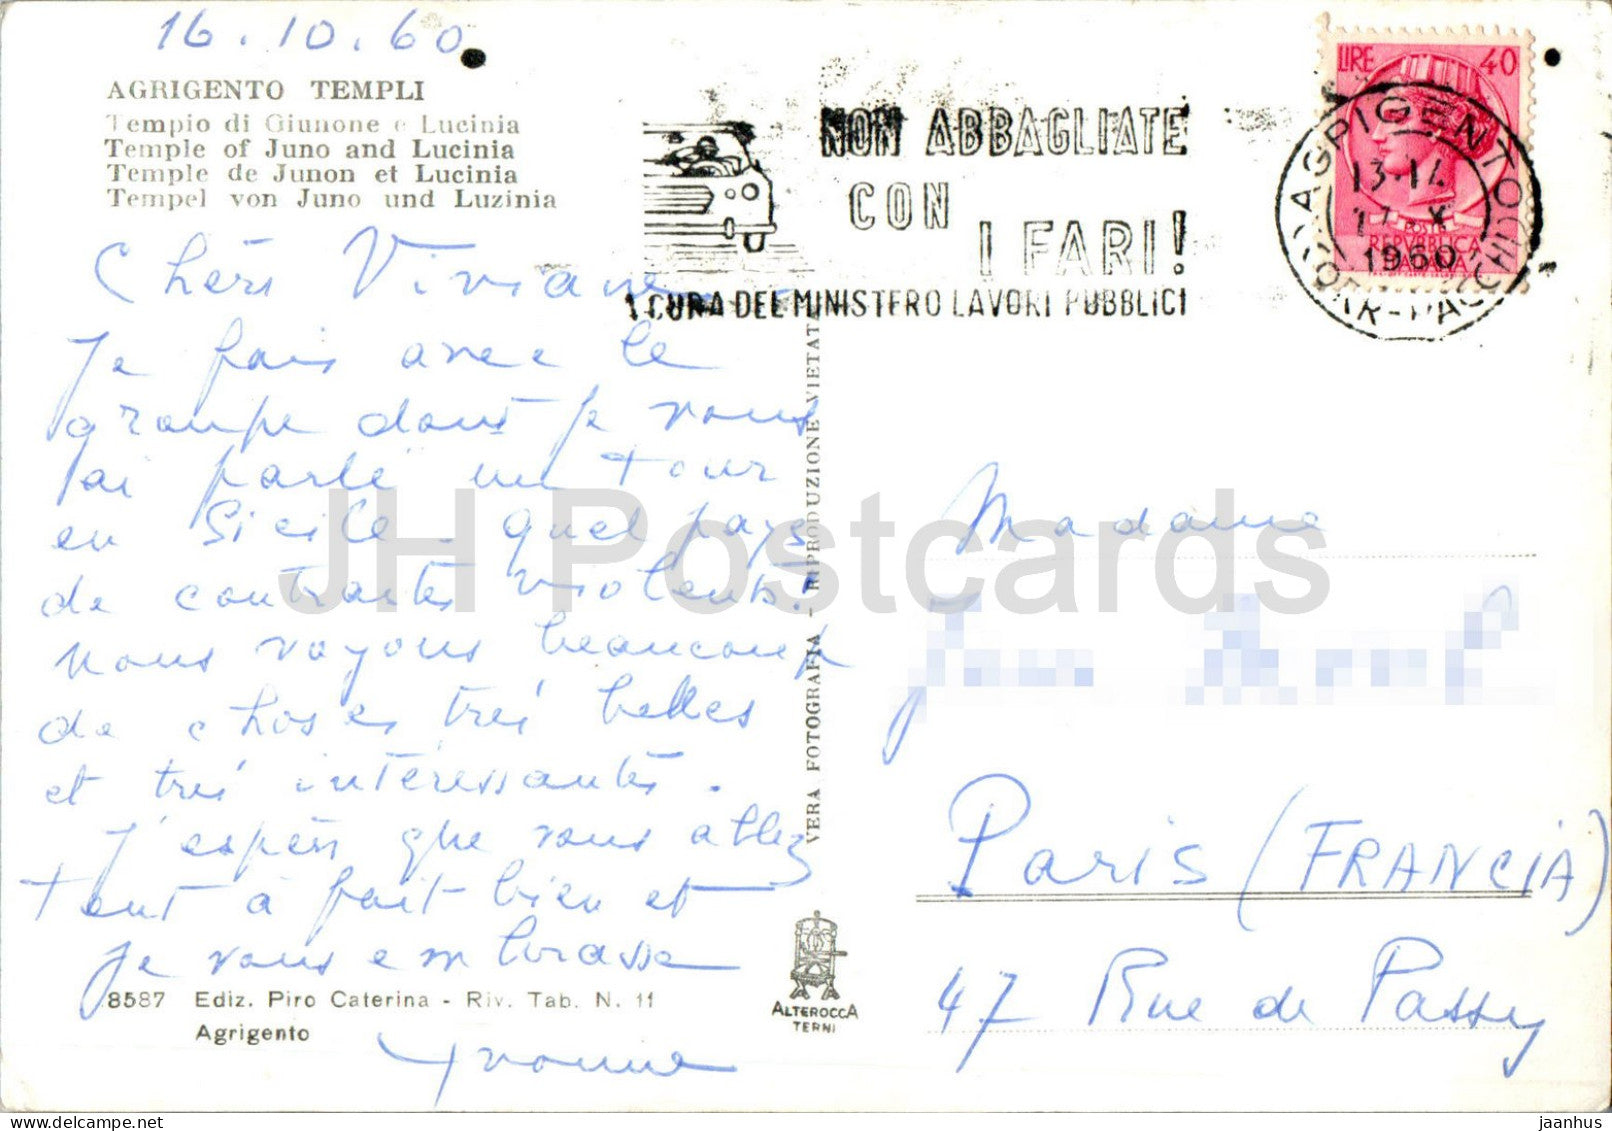 16.10.60
AGRIGENTO TEMPLI
Tempio di Giunone e Lucinia
Temple of Juno and Lucinia
Temple de Junon et Lucinia
Tempel von Juno und Luzinia
Chère Viviane
Je fais avec le
groupe dont je vous
ai parlé un tour
en Sicile - quel pays
de contrastes violents!
Nous voyons beaucoup
de choses très belles
et très intéressantes.
J'espère que vous allez
tout à fait bien et
je vous embrasse
Yvonne
8587 Ediz. Piro Caterina - Riv. Tab. N. 11
Agrigento
VERA FOTOGRAFIA - RIPRODUZIONE VIETATA
ALTEROCCA
TERNI
NON ABBAGLIATE
CON
I FARI!
A CURA DEL MINISTERO LAVORI PUBBLICI
LIRE 40
POSTE
REPVBBLICA
ITALIANA
AGRIGENTO
13-14
1960
Madame
Paris (FRANCIA)
47 Rue de Passy
JH Postcards
delcampe.net
jaanhus